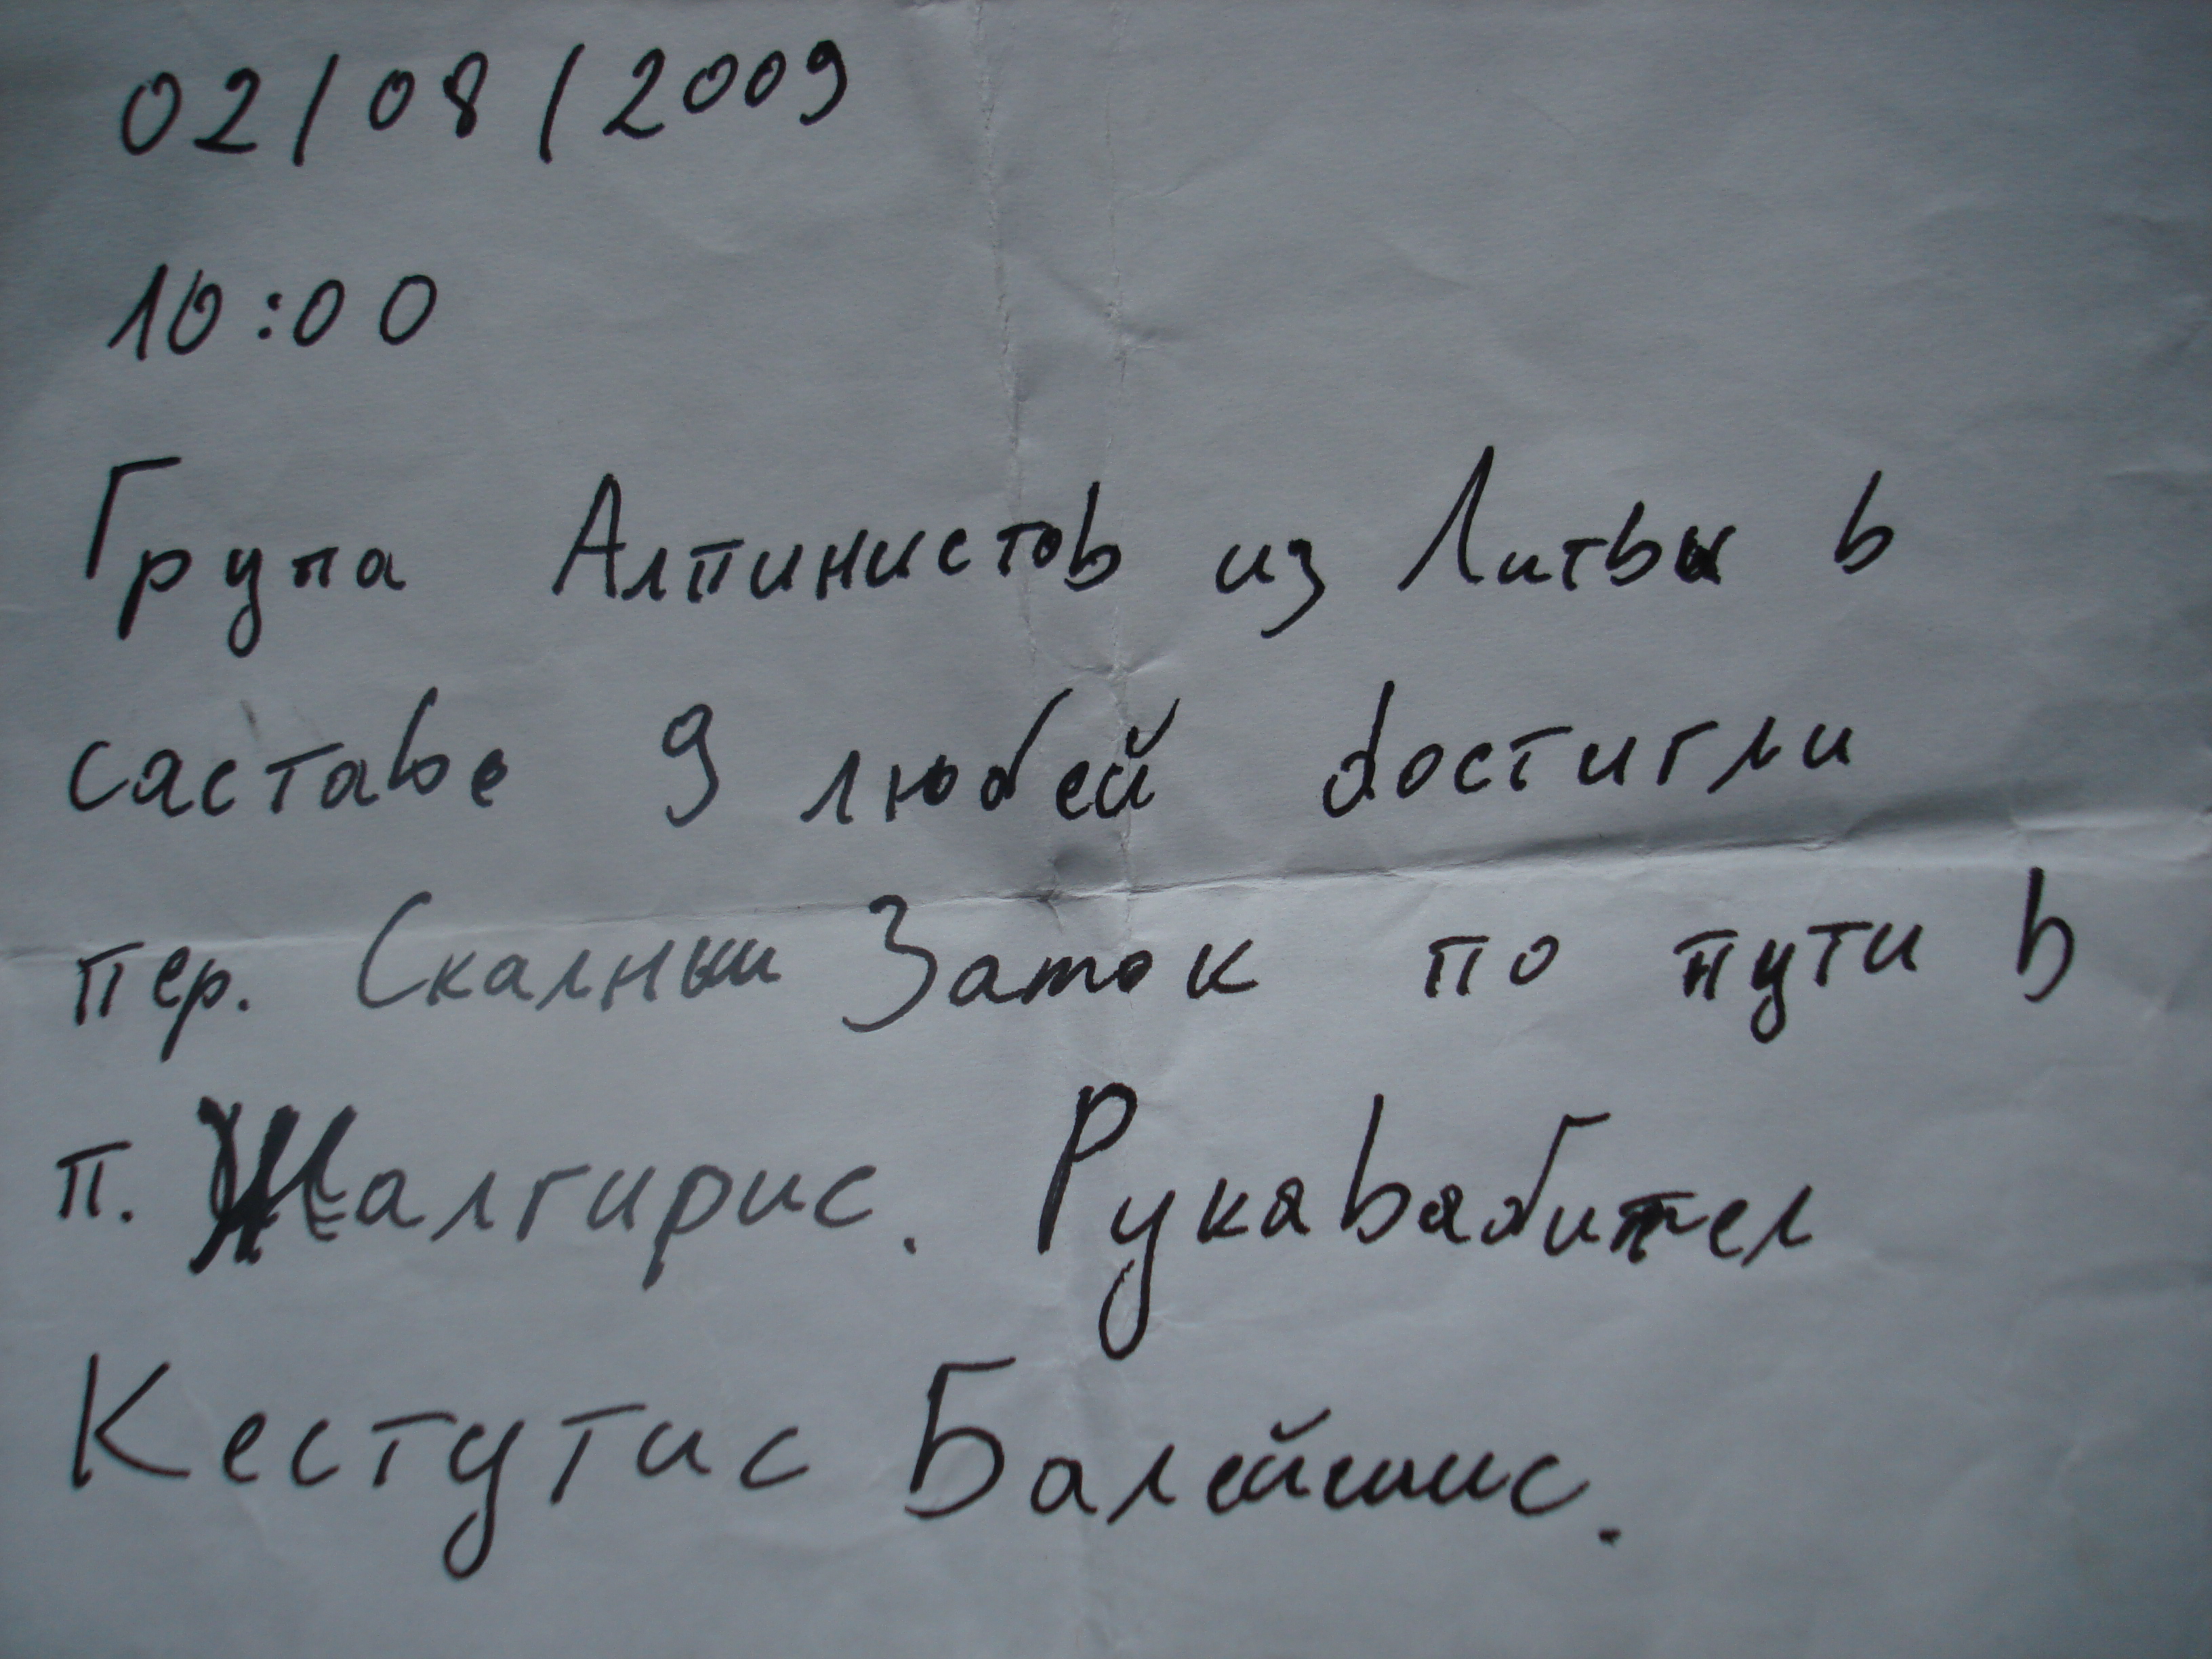 02/08/2009
10:00
Група Алпинистов из Литвы в
саставе 9 людей достигли
пер. Скалныи Заток по пути в
п. Жалгирис. Рукавадител
Кестутис Балейшис.